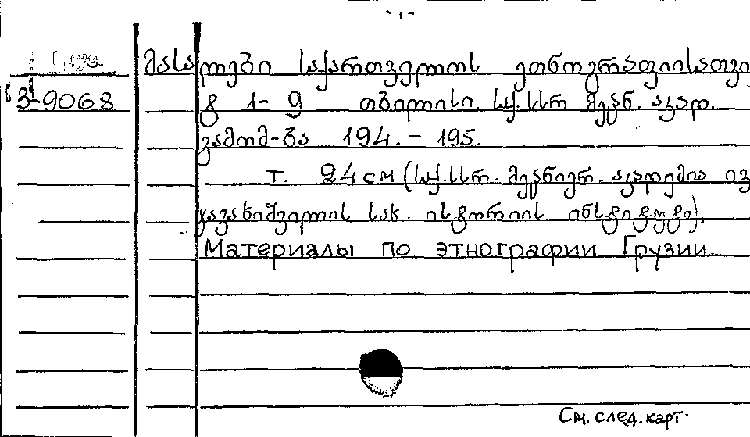 - 1 -
მასალები საქართველოს ეთნოგრაფიისათვი
3-9068 ტ 1-9 თბილისი საქ.სსრ მეცნ. აკად.
გამომ-ბა 194. - 195.
т. 24 см (საქ.სსრ. მეცნიერ. აკადემია ივ
ჯავახიშვილის სახ. ისტორიის ინსტიტუტი).
Материалы по этнографии Грузии
См. след. карт.